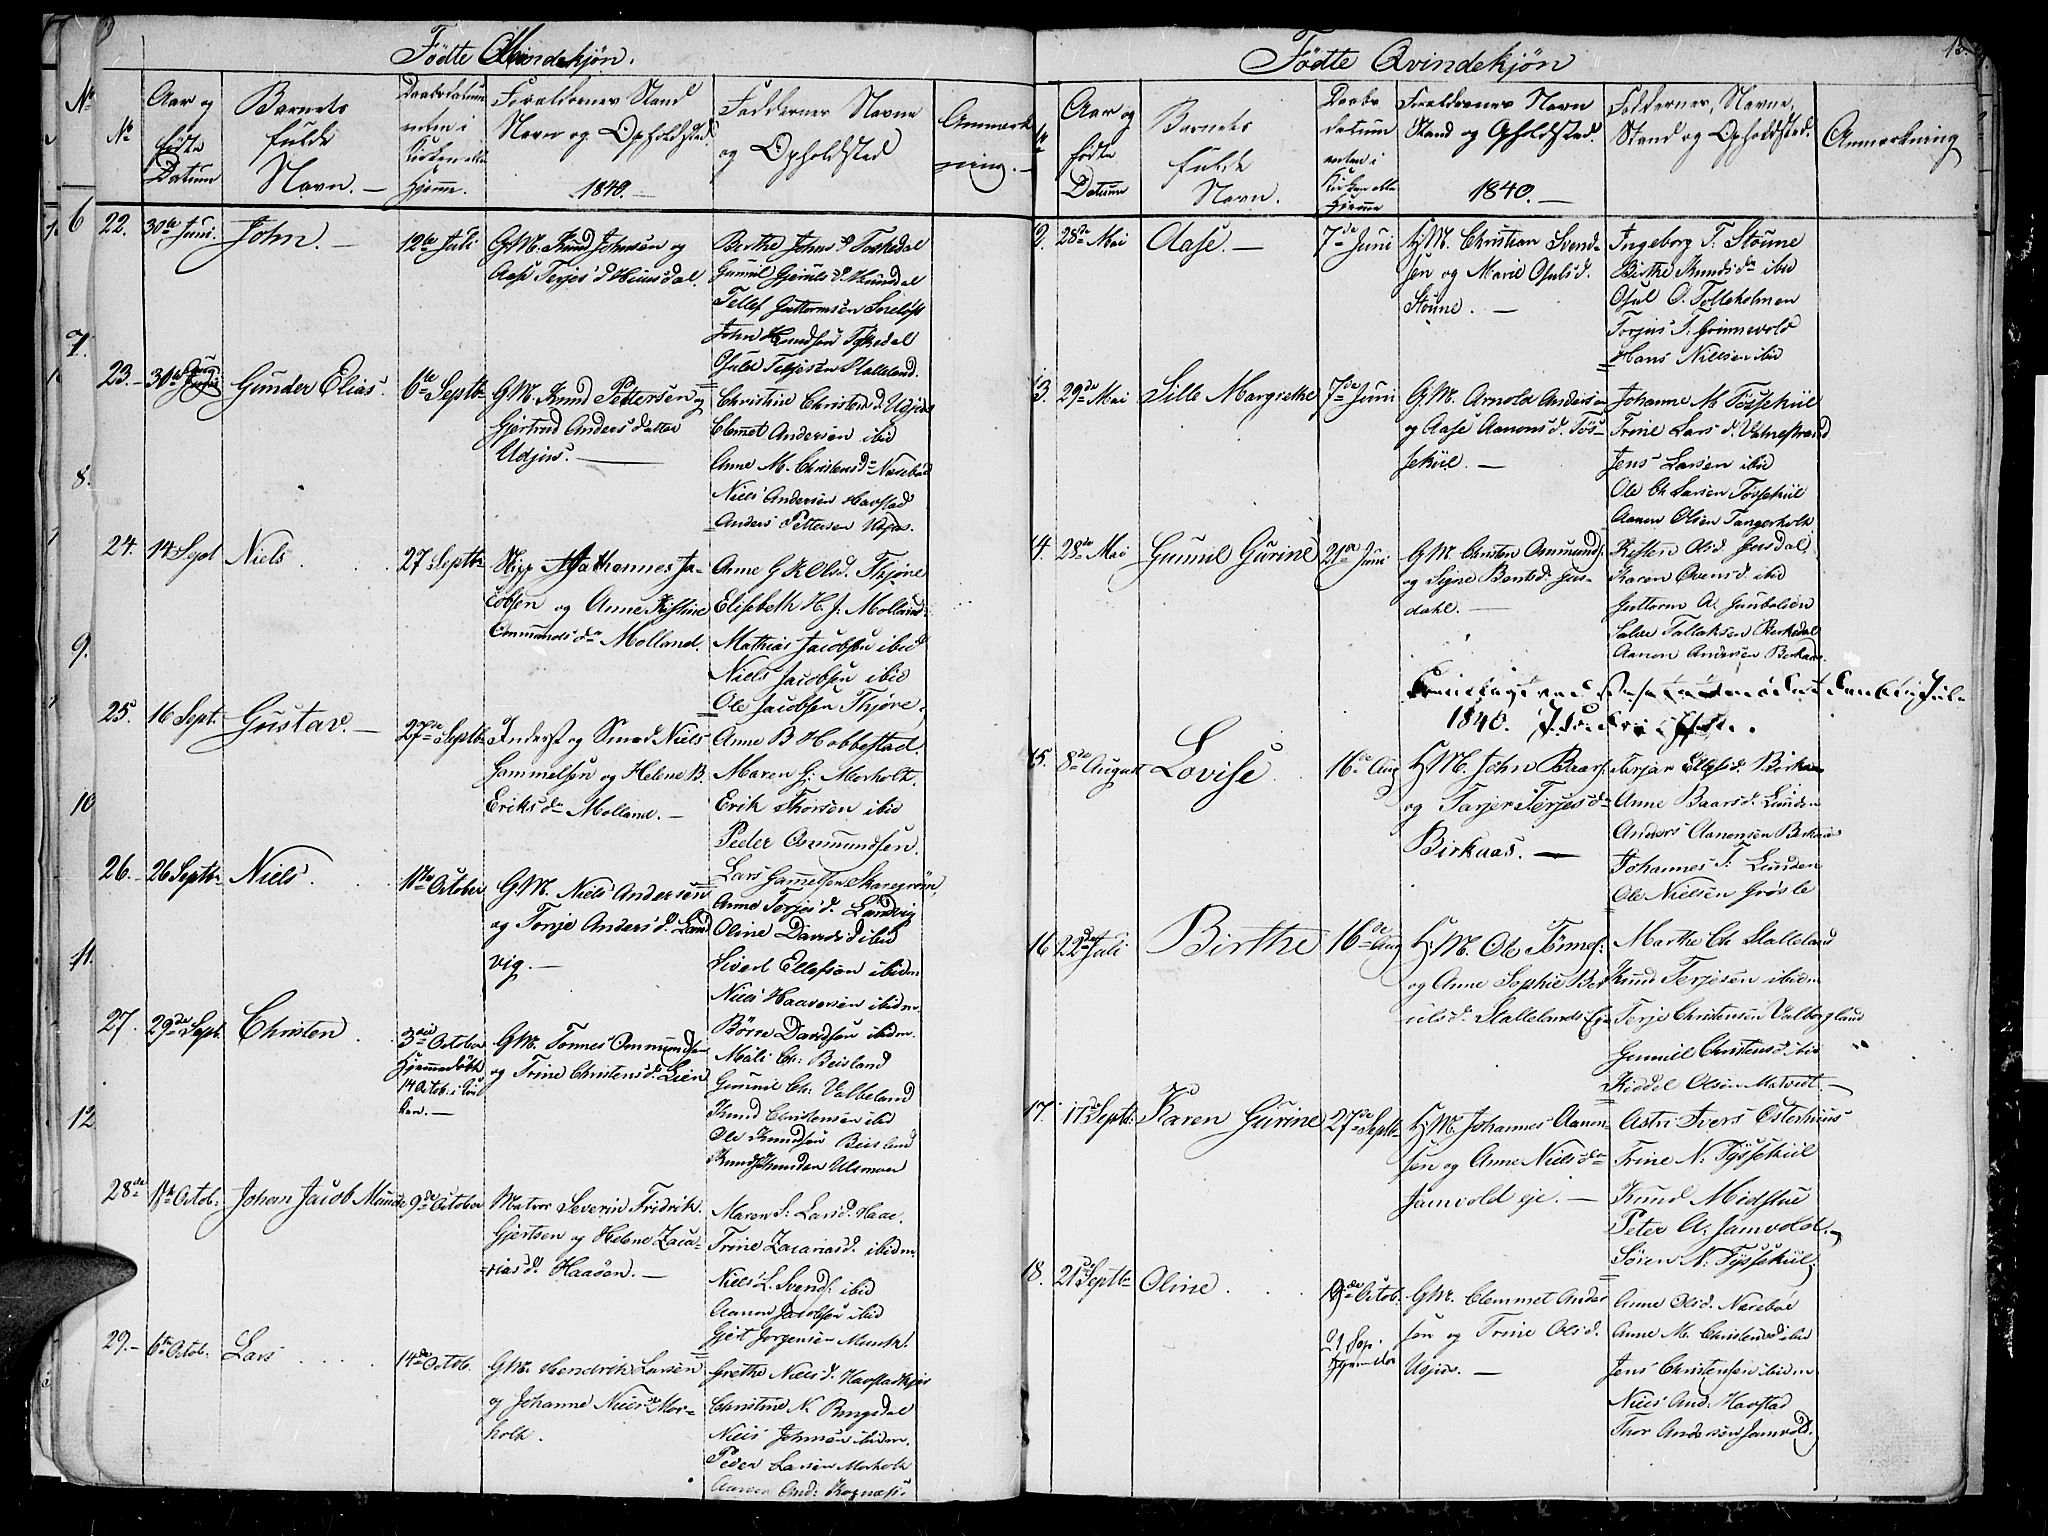 Fødte Mandkjøn.
No
Aar og
fødte
Datum
Barnets
fulde
Navn. —
Daabsdatum
enten i
Kirken eller
Hjemme.
Forældrenes Stand
Navn og Opholdsted.
1840.
Faddernes Navne
og Opholdsted
Anmerk
ning. —
22. 30te Juni. John. — 12te Juli
G.M. Knud Johnsen og
Aase Terjesd.
Birthe Johnsd.
Tellef Guttormsen
John Knudsen
Osuld Terjesen Kalleland.
23. — 30te Aug. Gunder Elias. 6te Septbr
G.M. Knud Pettersen og
Gjertrud Andersdatter
Udjus. —
Christine Christensd. Udjus
Clemet Andersen ibid
Anne M. Christensd. Næsebøe
Niels Andersen Havstad
Anders Pettersen Udjus.
24. 14 Sept Niels 27 Septbr
Johannes Ja-
cobsen og Anne Kistine
Omundsdr Molland.
Anne G K Olsd. Thjøre
Elisebeth H. J. Molland
Mathias Jacobsen ibid
Niels Jacobsen ibid
Ole Jacobsen Thjøre.
25. 16 Sept. Gustav. — 27de Septbr
Inderst og Smed Niels
Gammelsen og Helene B.
Eriksdr Molland. —
Anne B Hobbestad.
Maren G. Morholt.
Erik Thorsen ibid
Peder Ommundsen.
26. — 26 Septbr Niels. 11te October
G.M. Niels Andersen
og Torje Andersd. Land
vig. —
Lars Gamelsen Skaregrøm
Anne Torjesd. Landvig
Oline Davidsd ibid
Sivert Ellefsen ibidm
Niels Haaversen ibidm
Børre Davidsen ibidm.
27. 29de Sept. Christen. 3die October
Hjemmedøbt
14 Octob. i Kir
ken. —
G.M. Tønnes Ommundsen
og Trine Christensd. Lien
Mali Ch: Beisland
Gunnil Ch. Valbeland
Knud Christensen ibid
Ole Knudsen Beisland
28de Octob. Johan Jacob Munch 9de October
Matros Severin Fridrik
Gjertsen og Helene Zaca-
riasd. Haaøen. —
Maren S: Larsd. Haae.
Trine Zacariasd. ibidm.
Niels L. Svends: ibid
Aanon Jacobsen ibid
Gjert Jørgensen Munch.
29. — 6te Octob. Lars 14de Octob.
G.M. Hendrik Larsen
og Johanne Nielsdr Mor-
holt.
Grethe Nielsd. Havstadkjær
Christine N. Ringsdal
Niels Johnsen ibidm.
Peder Larsen Morholt
Aanon And:
6
7.
8.
9.
10
11.
12
Fødte Qvindekjøn
Aar og
fødte
Datum
Barnets
fulde
Navn.
Daabs
datum
enten i
Kirken eller
Hjemme
Forældrenes Navn
Stand og Opholdsted.
1840. —
Faddernes, Navne,
Stand og Opholdsted.
Anmerkning
12. 28de Mai Aase. — 7de Juni
H.M. Christian Svend-
sen og Marie Osulsd.
Støune. —
Ingeborg T. Støune
Birthe Knudsdr ibid
Osul O. Tolleholmen
Torjus T. Grimevold
Hans Nielsen ibid
13. 29de Mai Sille Margrethe 7de Juni
G.M. Arnold Andersen
og Aase Aanonsd. Tøs-
sekiil. —
Johanne M Tøssekiil
Trine Larsd. Valnestrand
Jens Larsen ibid
Ole Ch Larsen Tøssekiil
Aanon Olsen Tangerholt.
14. 28de Mai Gunnil Gurine 21de Juni
G.M. Christen Ommunds.
og Signe Bentsd. Jus-
dahl. —
Kisten Olsd. Jusdal
Karen Evensd. ibid
Guttorm A.
Salve Tallaksen Birkedal
Aanon Andersen Birkaas.
1840.
15. 8de August Lovise. 16de Aug
H.M. John Baars:
og Tarjer Terjesdr
Birkaas. —
Tarjer Ellefsd. Birkaas
Anne Baarsd. Lunden
Anders Aanonsen Birkaas
Johannes T. Lunden
Ole Nielsen Grøsle
16 22de Juli Birthe 16de Aug
H.M. Ole Tønnes:
og Anne Sophie Ber
Stallelands Eje
Marthe Ch Stalleland
Knud Terjesen ibidm
Terje Christensen Valborgland
Gunnild Christensd ibid
Kiddel Olsen Matvedt. —
17. 17de Septbr: Karen Gurine 27de Septbr
H.M. Johannes Aanon
sen og Anne Nielsdr
Jamvold eje. —
Astri Ivers Østerhuus
Trine N: Tyssekiil
Knud Midstue
Peter A: Jamvold.
Søren N: Tyssekiil.
18. 21de Septbr Oline. Octob.
G.M. Clemmet Ander
sen og Trine Olsd.
Udjus. —
Anne Olsd. Næsebøe
Anne M. Christensd ibid
Jens Christensen ibidm
Niels And: Havstad
Thor Andersen Jamvold.